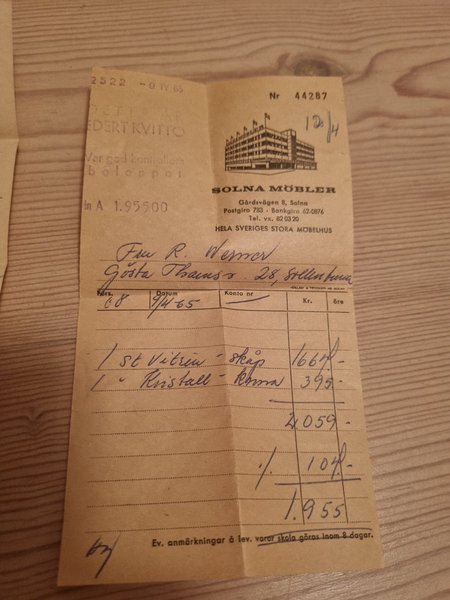 2522 -9 IV 65
Nr 44287
KVITTO
12/4
SOLNA MÖBLER
Gårdsvägen 8, Solna
Postgiro 783 - Bankgiro 62-0876
Tel. vx. 82 03 20
A 1.955 00
HELA SVERIGES STORA MÖBELHUS
Fru R. Werner
Gösta 28, Sollentuna
Förs. Datum Konto nr Kr. öre
68 9/4-65
1 st Vitrin - skåp 1664 -
1 " Kristall - krona 395 -
2059 -
% 104 -
1.955
Ev. anmärkningar å lev. varor skola göras inom 8 dagar.